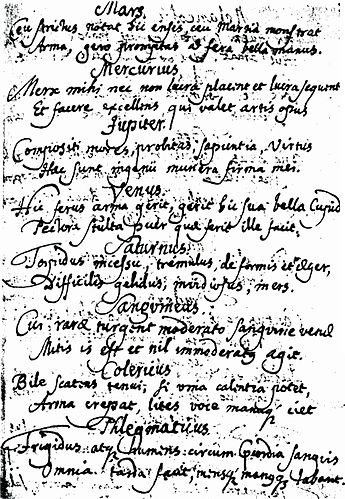 Mars
Ceu strictus notat hic ensis, ceu Martia monstrat
Arma, gero promptas ad fera bella manus.
Mercurius
Merx mihi, nec non lucra placent et lucra sequunt
Et facere excellens qui valet artis opus
Jupiter.
Compositi mores, probitas, sapientia, Virtus
Haec sunt ingenii munera firma mei.
Venus
Hic ferus arma gerit, gerit hic sua bella Cupido
Pectora stulta puer que ferit ille facit,
Saturnus
Torpidus incessu, tremulus, deformis et aeger,
Difficilis gelidus, iners.
Sangvineus.
Cur rarae turgent moderato sanguine venae
Mitis is est et nil immoderatq agit.
Colericus
Bile scatens tenui, si
Arma crepat, lites voce manuq ciet
Phlegmaticus
Frigidus atq humens circum sanguis
Omnia tarda facit,